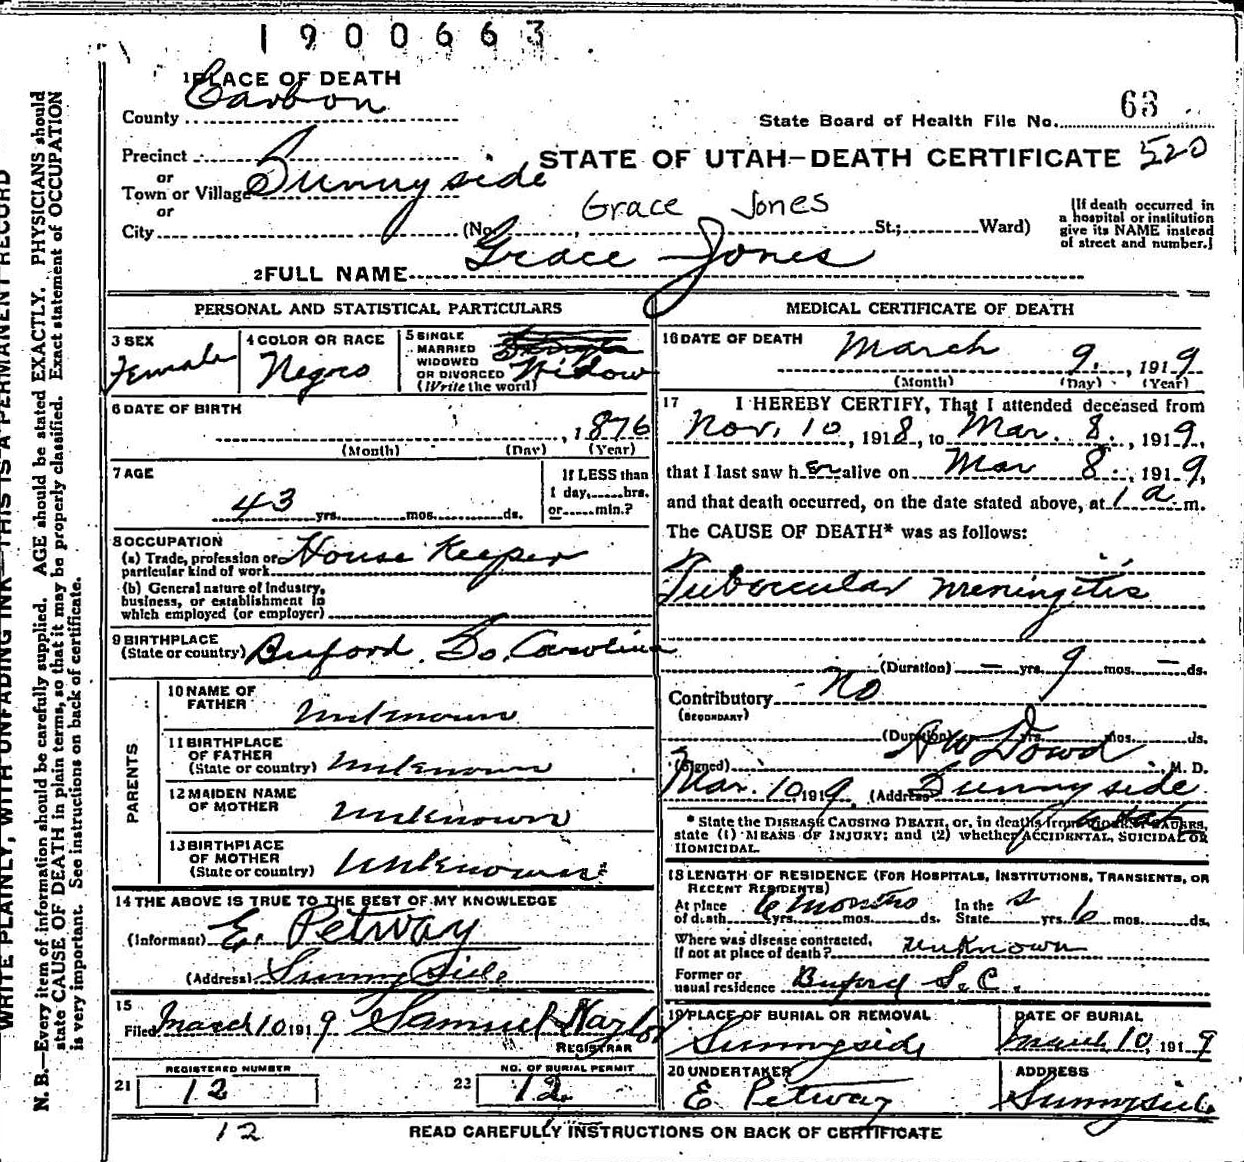 1900663
1 PLACE OF DEATH
County Carbon
State Board of Health File No. 63
Precinct
or
Town or Village Sunnyside
or
City
STATE OF UTAH—DEATH CERTIFICATE 520
Grace Jones
(No. St.; Ward)
[If death occurred in
a hospital or institution
give its NAME instead
of street and number.]
2 FULL NAME Grace Jones
PERSONAL AND STATISTICAL PARTICULARS
3 SEX
Female
4 COLOR OR RACE
Negro
5 SINGLE
MARRIED
WIDOWED
OR DIVORCED
(Write the word)
Widow
6 DATE OF BIRTH
, 1876
(Month) (Day) (Year)
7 AGE
43 yrs. mos. ds.
If LESS than
1 day, hrs.
or min.?
8 OCCUPATION
(a) Trade, profession or
particular kind of work House Keeper
(b) General nature of industry,
business, or establishment in
which employed (or employer)
9 BIRTHPLACE
(State or country) Buford So. Carolina
PARENTS
10 NAME OF
FATHER Unknown
11 BIRTHPLACE
OF FATHER
(State or country) Unknown
12 MAIDEN NAME
OF MOTHER Unknown
13 BIRTHPLACE
OF MOTHER
(State or country) Unknown
14 THE ABOVE IS TRUE TO THE BEST OF MY KNOWLEDGE
(Informant) E. Petway
(Address) Sunny Side
15
Filed March 10 1919 Samuel Naylor
REGISTRAR
REGISTERED NUMBER
21 12
NO. OF BURIAL PERMIT
22 12
12
MEDICAL CERTIFICATE OF DEATH
16 DATE OF DEATH March 9, 1919
(Month) (Day) (Year)
17 I HEREBY CERTIFY, That I attended deceased from
Nov. 10, 1918, to Mar. 8., 1919,
that I last saw her alive on Mar 8., 1919,
and that death occurred, on the date stated above, at 1 a. m.
The CAUSE OF DEATH* was as follows:
Tubercular meningitis
(Duration) — yrs. 9 mos. — ds.
Contributory No
(SECONDARY)
(Duration) yrs. mos. ds.
(Signed) A W Dowd M. D.
Mar. 10, 1919. (Address) Sunnyside
Utah
* State the DISEASE CAUSING DEATH, or, in deaths from VIOLENT CAUSES,
state (1) MEANS OF INJURY; and (2) whether ACCIDENTAL, SUICIDAL OR
HOMICIDAL.
18 LENGTH OF RESIDENCE (FOR HOSPITALS, INSTITUTIONS, TRANSIENTS, OR
RECENT RESIDENTS)
At place
of death 6 months yrs. mos. ds.
In the
State yrs. 6 mos. ds.
Where was disease contracted,
if not at place of death? unknown
Former or
usual residence Buford S.C.
19 PLACE OF BURIAL OR REMOVAL
Sunnyside
DATE OF BURIAL
March 10, 1919
20 UNDERTAKER
E. Petway
ADDRESS
Sunnyside
READ CAREFULLY INSTRUCTIONS ON BACK OF CERTIFICATE
WRITE PLAINLY, WITH UNFADING INK—THIS IS A PERMANENT RECORD
N. B.—Every item of information should be carefully supplied. AGE should be stated EXACTLY. PHYSICIANS should
state CAUSE OF DEATH in plain terms, so that it may be properly classified. Exact statement of OCCUPATION
is very important. See instructions on back of certificate.